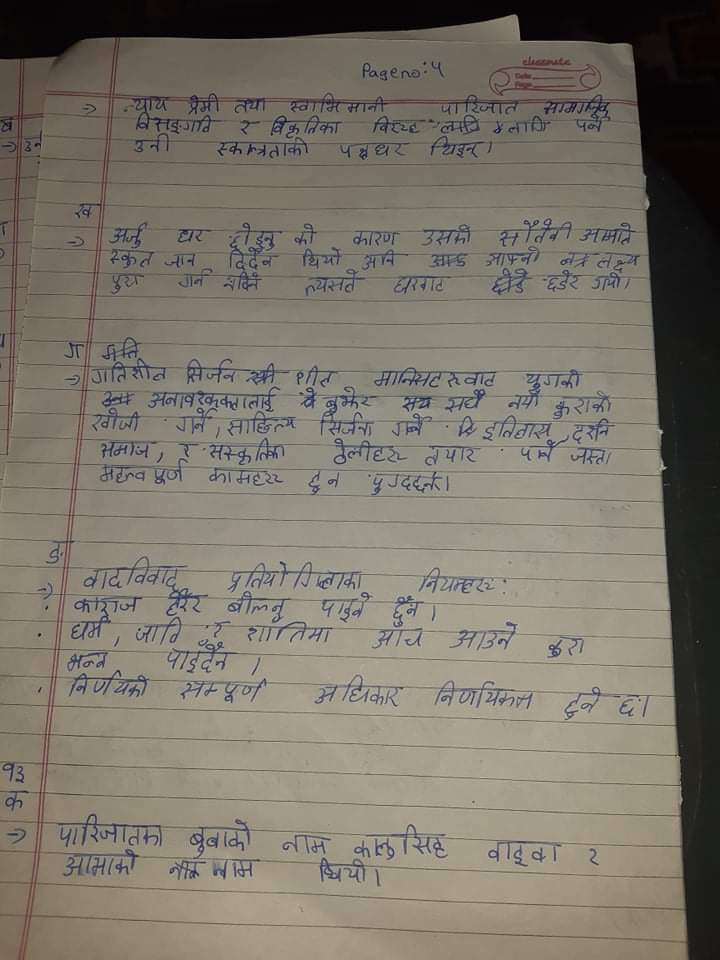 Page no: 4
classmate
Date
Page
→ न्याय प्रेमी तथा स्वाभिमानी पारिजात सामाजिक
विसङ्गति र विकृतिका विरुद्ध लागि पर्ने
उनी स्वतन्त्रताकी पक्षधर थिइन्।
ख
→ अर्जु घर छोड्नु को कारण उसको सौतेनी आमाले
स्कुल जान दिदैन थियो अनि आफ्नो लक्ष्य
पुरा गर्न त्यसले घरबाट छडेर गयो।
ग
→ गतिशील सिर्जन शील मानिसहरुबाट युगको
अनावश्यकतालाई बुझेर सधै नयाँ कुराको
खोजी गर्ने, साहित्य सिर्जना गर्ने इतिहास, दर्शन
समाज, र संस्कृतिका ठेलीहरु तयार पार्ने जस्ता
महत्वपूर्ण कामहरु हुन पुग्दछन्।
ङ
→ वादविवाद प्रतियोगिताका नियमहरु:
. कागज हेरेर बोल्नु पाइने छैन।
. धर्म, जाति र शान्तिमा आच आउने कुरा
भन्न पाइदैन।
. निर्णयको सम्पूर्ण अधिकार निर्णायकमा हुने छ।
१३
क
→ पारिजातका बुबाको नाम कालुसिंह वाइबा र
आमाको नाम थियो।